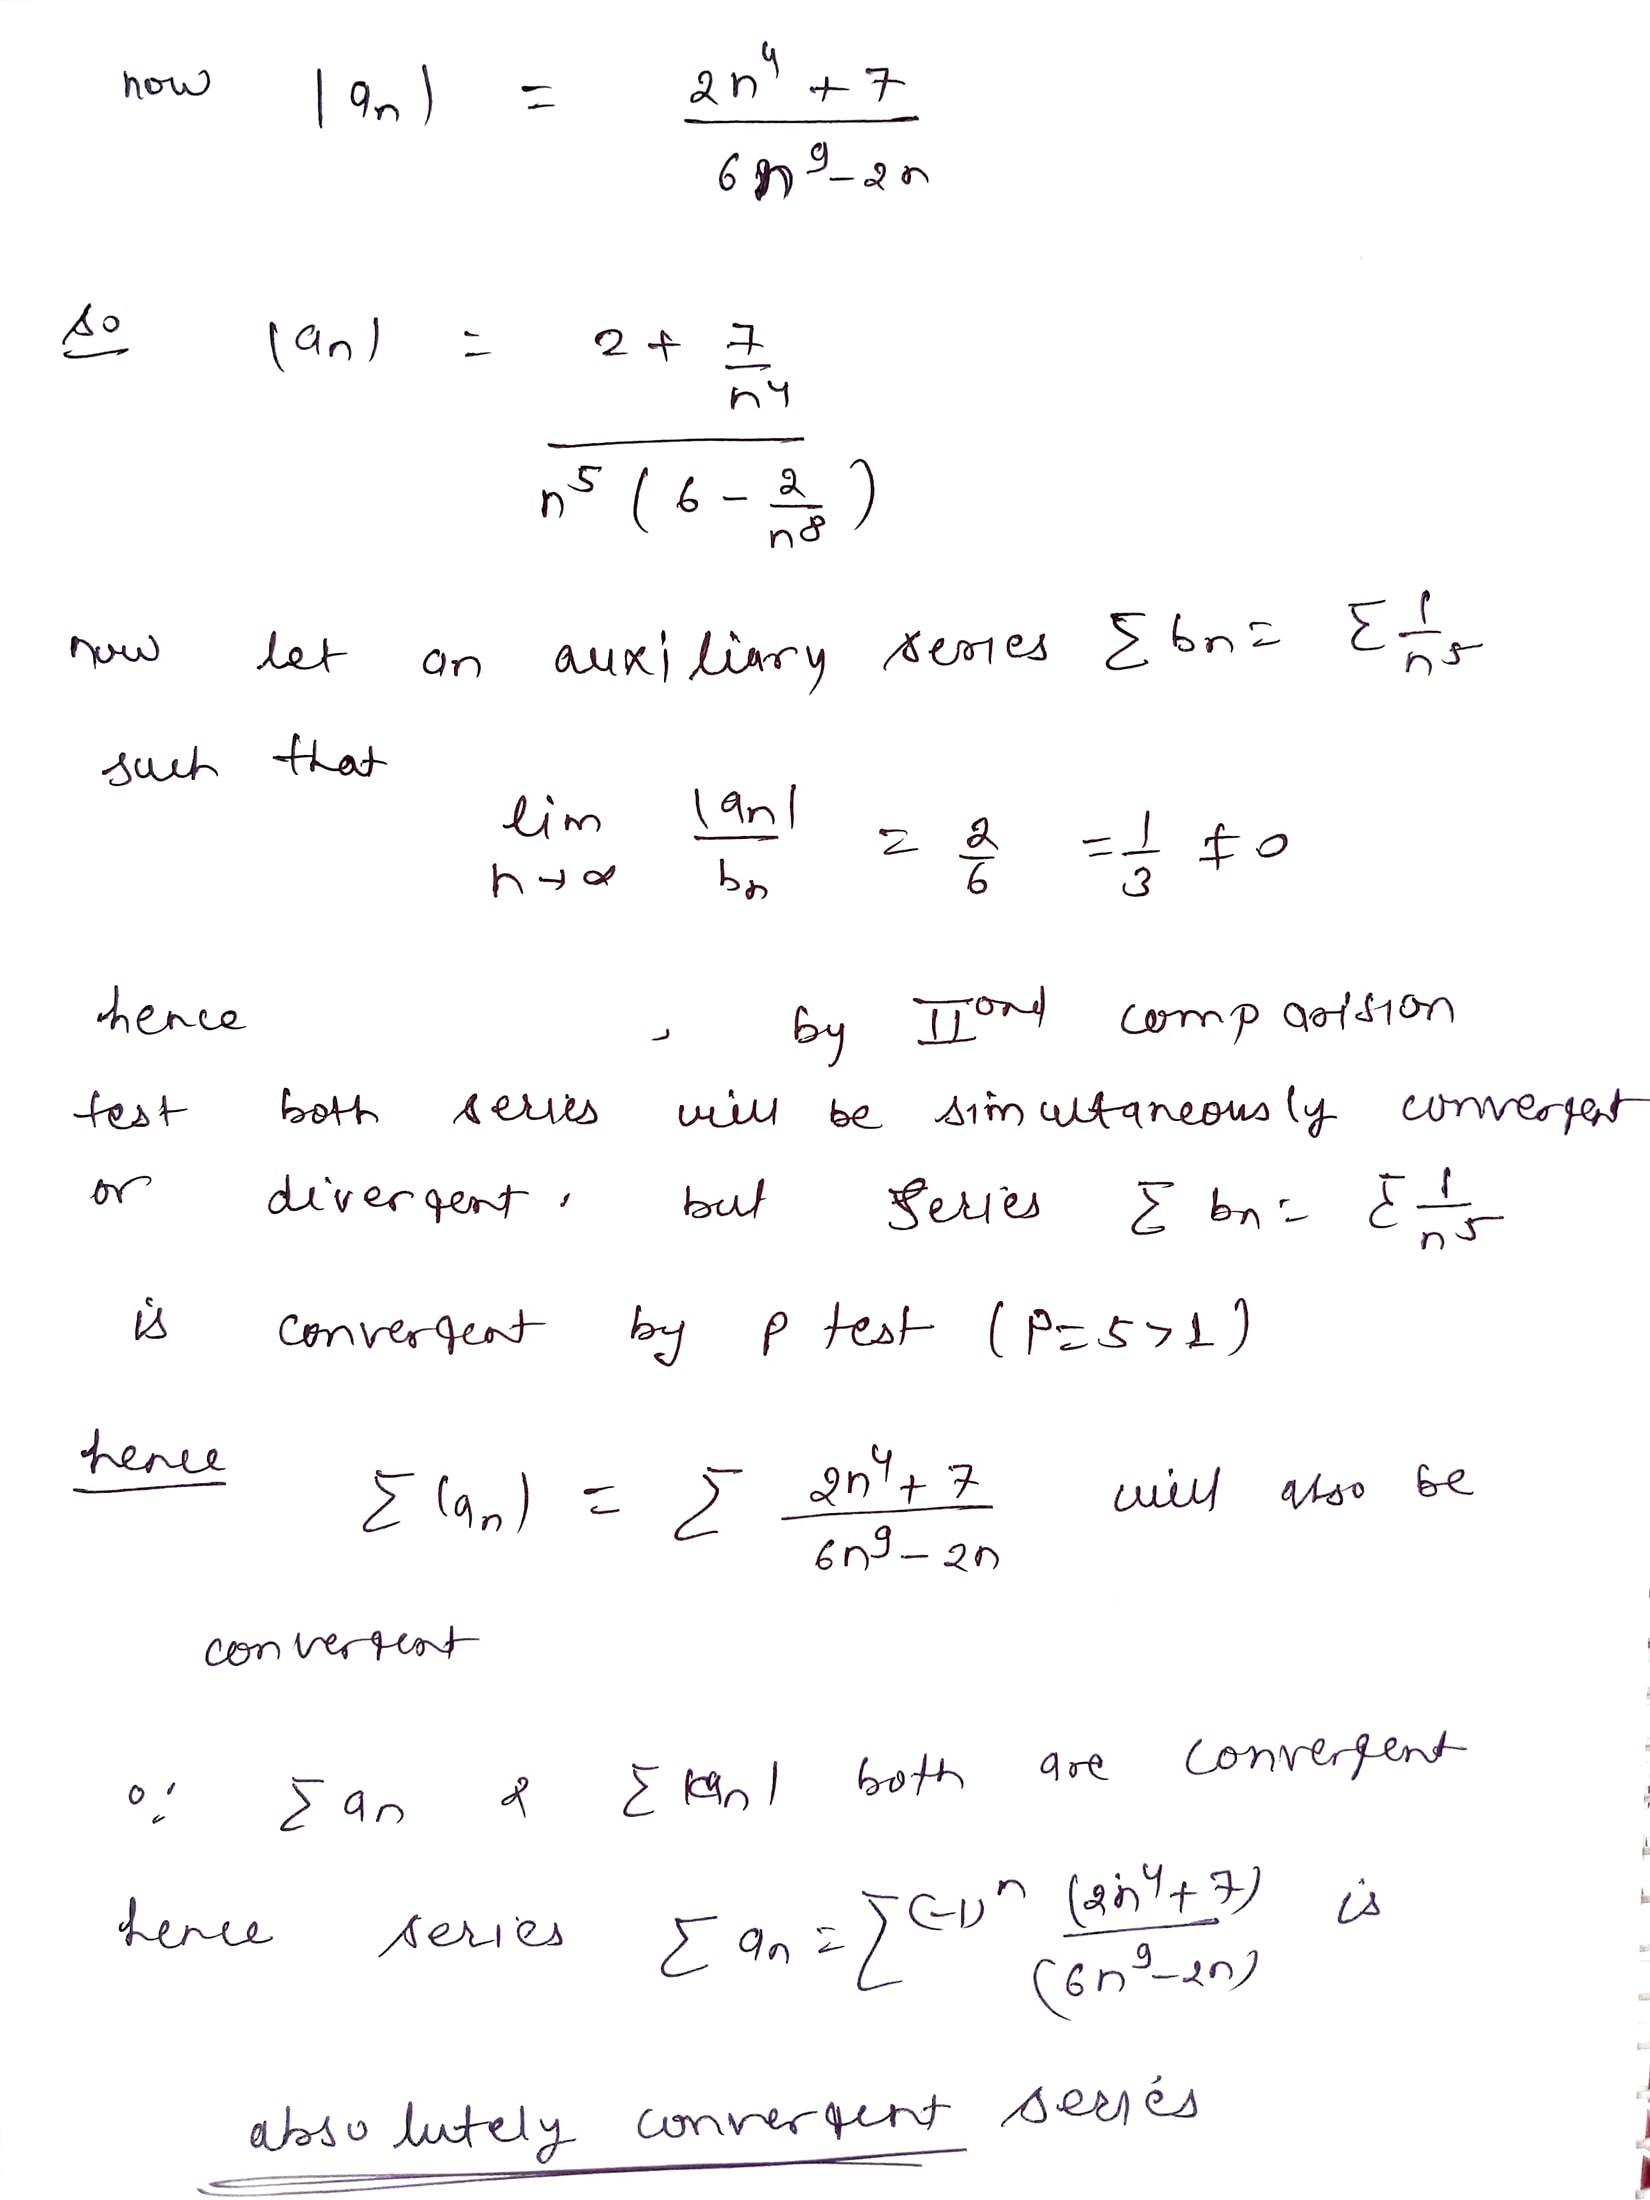 now |an| = 2n⁴ + 7 / 6n⁹ - 2n
so |an| = 2 + 7/n⁴ / n⁵ (6 - 2/n⁸)
now let an auxiliary series Σ bn = Σ 1/n⁵
such that
lim n→∞ |an| / bn = 2/6 = 1/3 ≠ 0
hence , by IIond comparision
test both series will be simultaneously convergent
or divergent. but series Σ bn = Σ 1/n⁵
is convergent by p test (P=5>1)
hence Σ |an| = Σ 2n⁴ + 7 / 6n⁹ - 2n will also be
convergent
∵ Σ an & Σ |an| both are convergent
hence series Σ an = Σ (-1)ⁿ (2n⁴ + 7) / (6n⁹ - 2n) is
absolutely convergent series